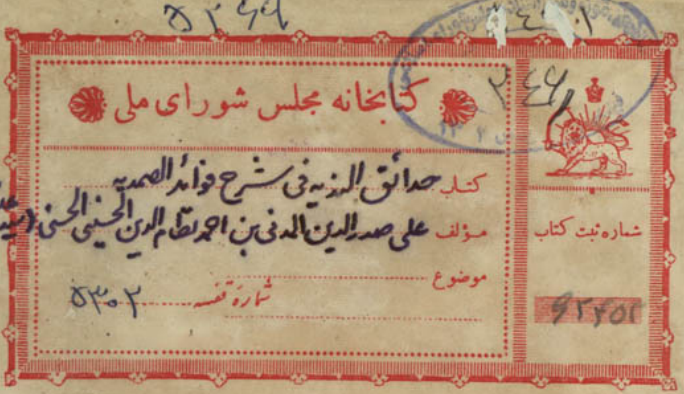 ۵۲۶۶
کتابخانه مجلس شورای ملی
کتاب حدائق الندیه فی شرح فوائد الصمدیه
مؤلف علی صدرالدین المدنی بن احمد نظام الدین الحسینی الحسنی
موضوع
شماره قفسه ۵۳۰۲
شماره ثبت کتاب